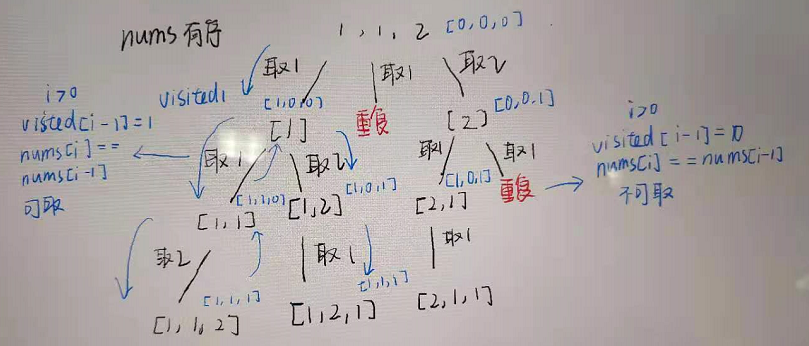 nums有序
1, 1, 2 [0,0,0]
取1
取1
取2
visited1
[1,0,0]
[1]
重复
[2]
[0,0,1]
i>0
visted[i-1]=1
nums[i]==
nums[i-1]
可取
i>0
visited[i-1]=0
nums[i]==nums[i-1]
不可取
取1
取2
取1
取1
[1,1,0]
[1,0,1]
[1,0,1]
[1,1]
[1,2]
[2,1]
重复
取2
取1
取1
[1,1,1]
[1,1,1]
[1,1,2]
[1,2,1]
[2,1,1]